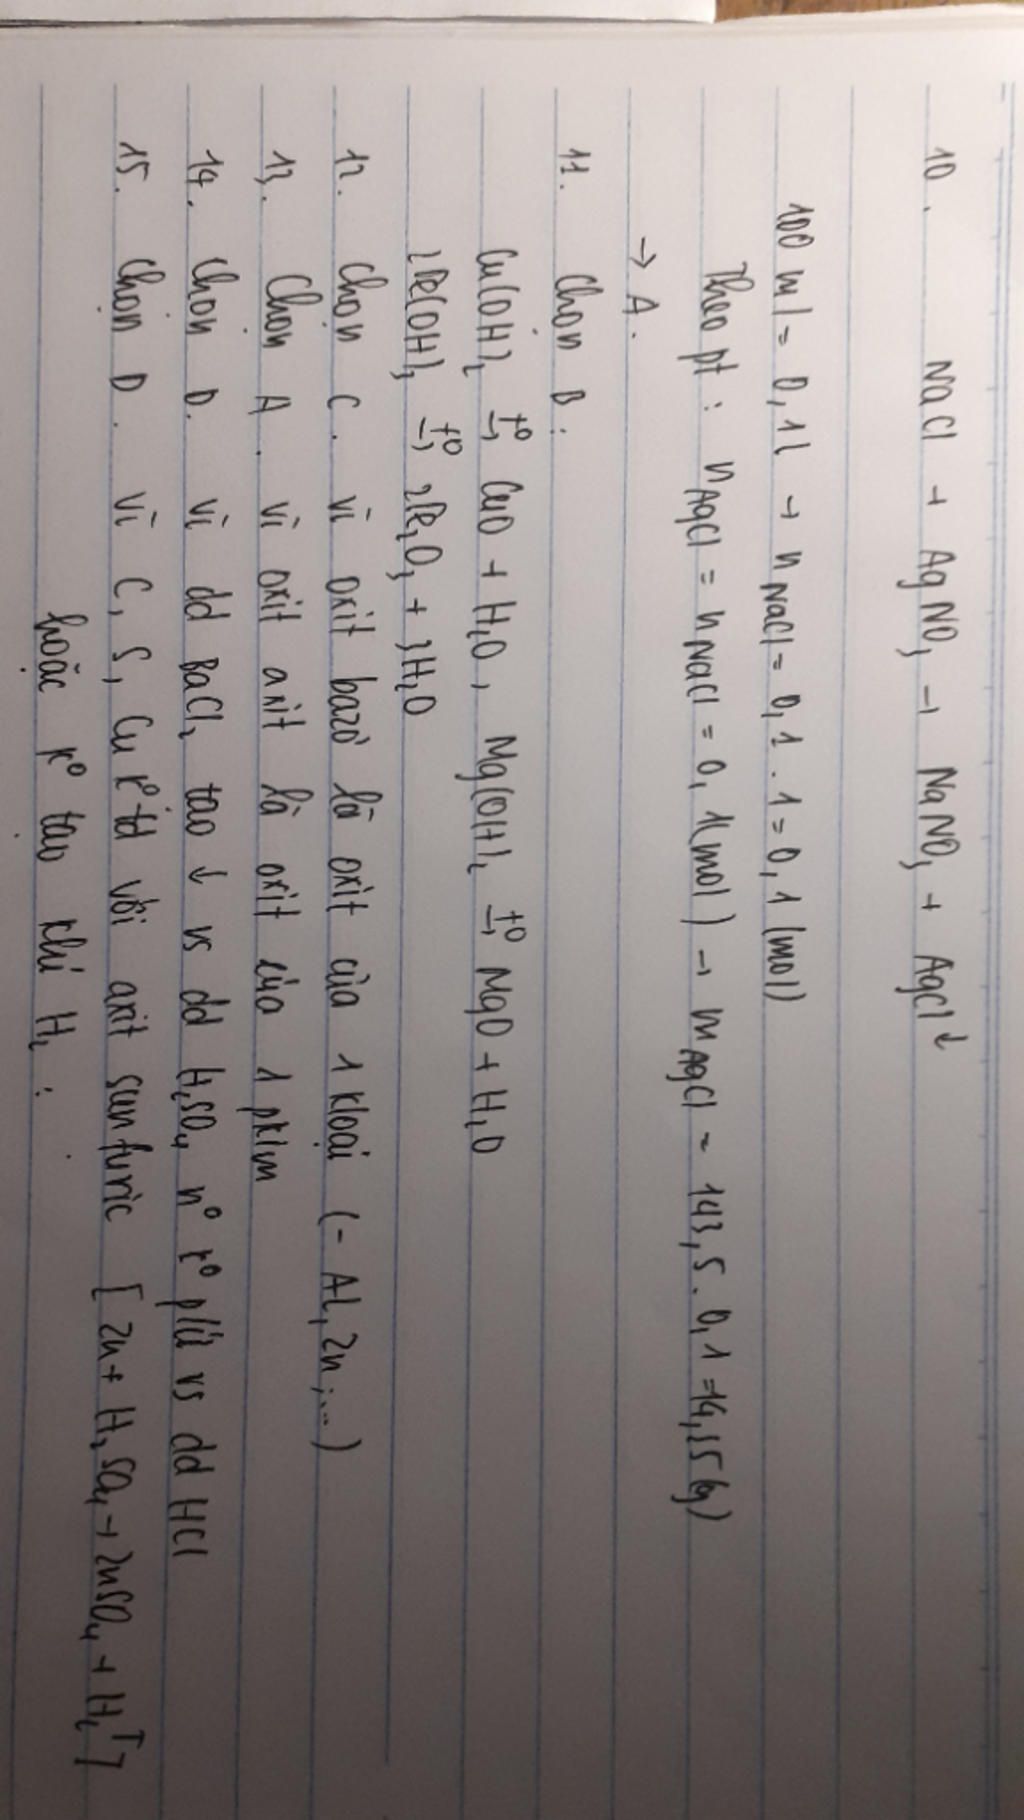 10. NaCl + AgNO₃ → NaNO₃ + AgCl↓
100 ml = 0,1l → nNaCl = 0,1 . 1 = 0,1 (mol)
Theo pt : nAgCl = nNaCl = 0,1(mol) → mAgCl = 143,5 . 0,1 = 14,35 (g)
→ A.
11. Chọn B :
Cu(OH)₂ →t° CuO + H₂O, Mg(OH)₂ →t° MgO + H₂O
2Fe(OH)₃ →t° 2Fe₂O₃ + 3H₂O
12. Chọn C. vì oxit bazơ là oxit của 1 kloại (- Al, Zn,...)
13. Chọn A. vì oxit axit là oxit của 1 pkim
14. Chọn D. vì dd BaCl₂ tạo ↓ vs dd H₂SO₄ n° k° pứ vs dd HCl
15. Chọn D. vì C, S, Cu k° td với axit sunfuric [ Zn + H₂SO₄ → ZnSO₄ + H₂↑]
hoặc k° tạo khí H₂ :